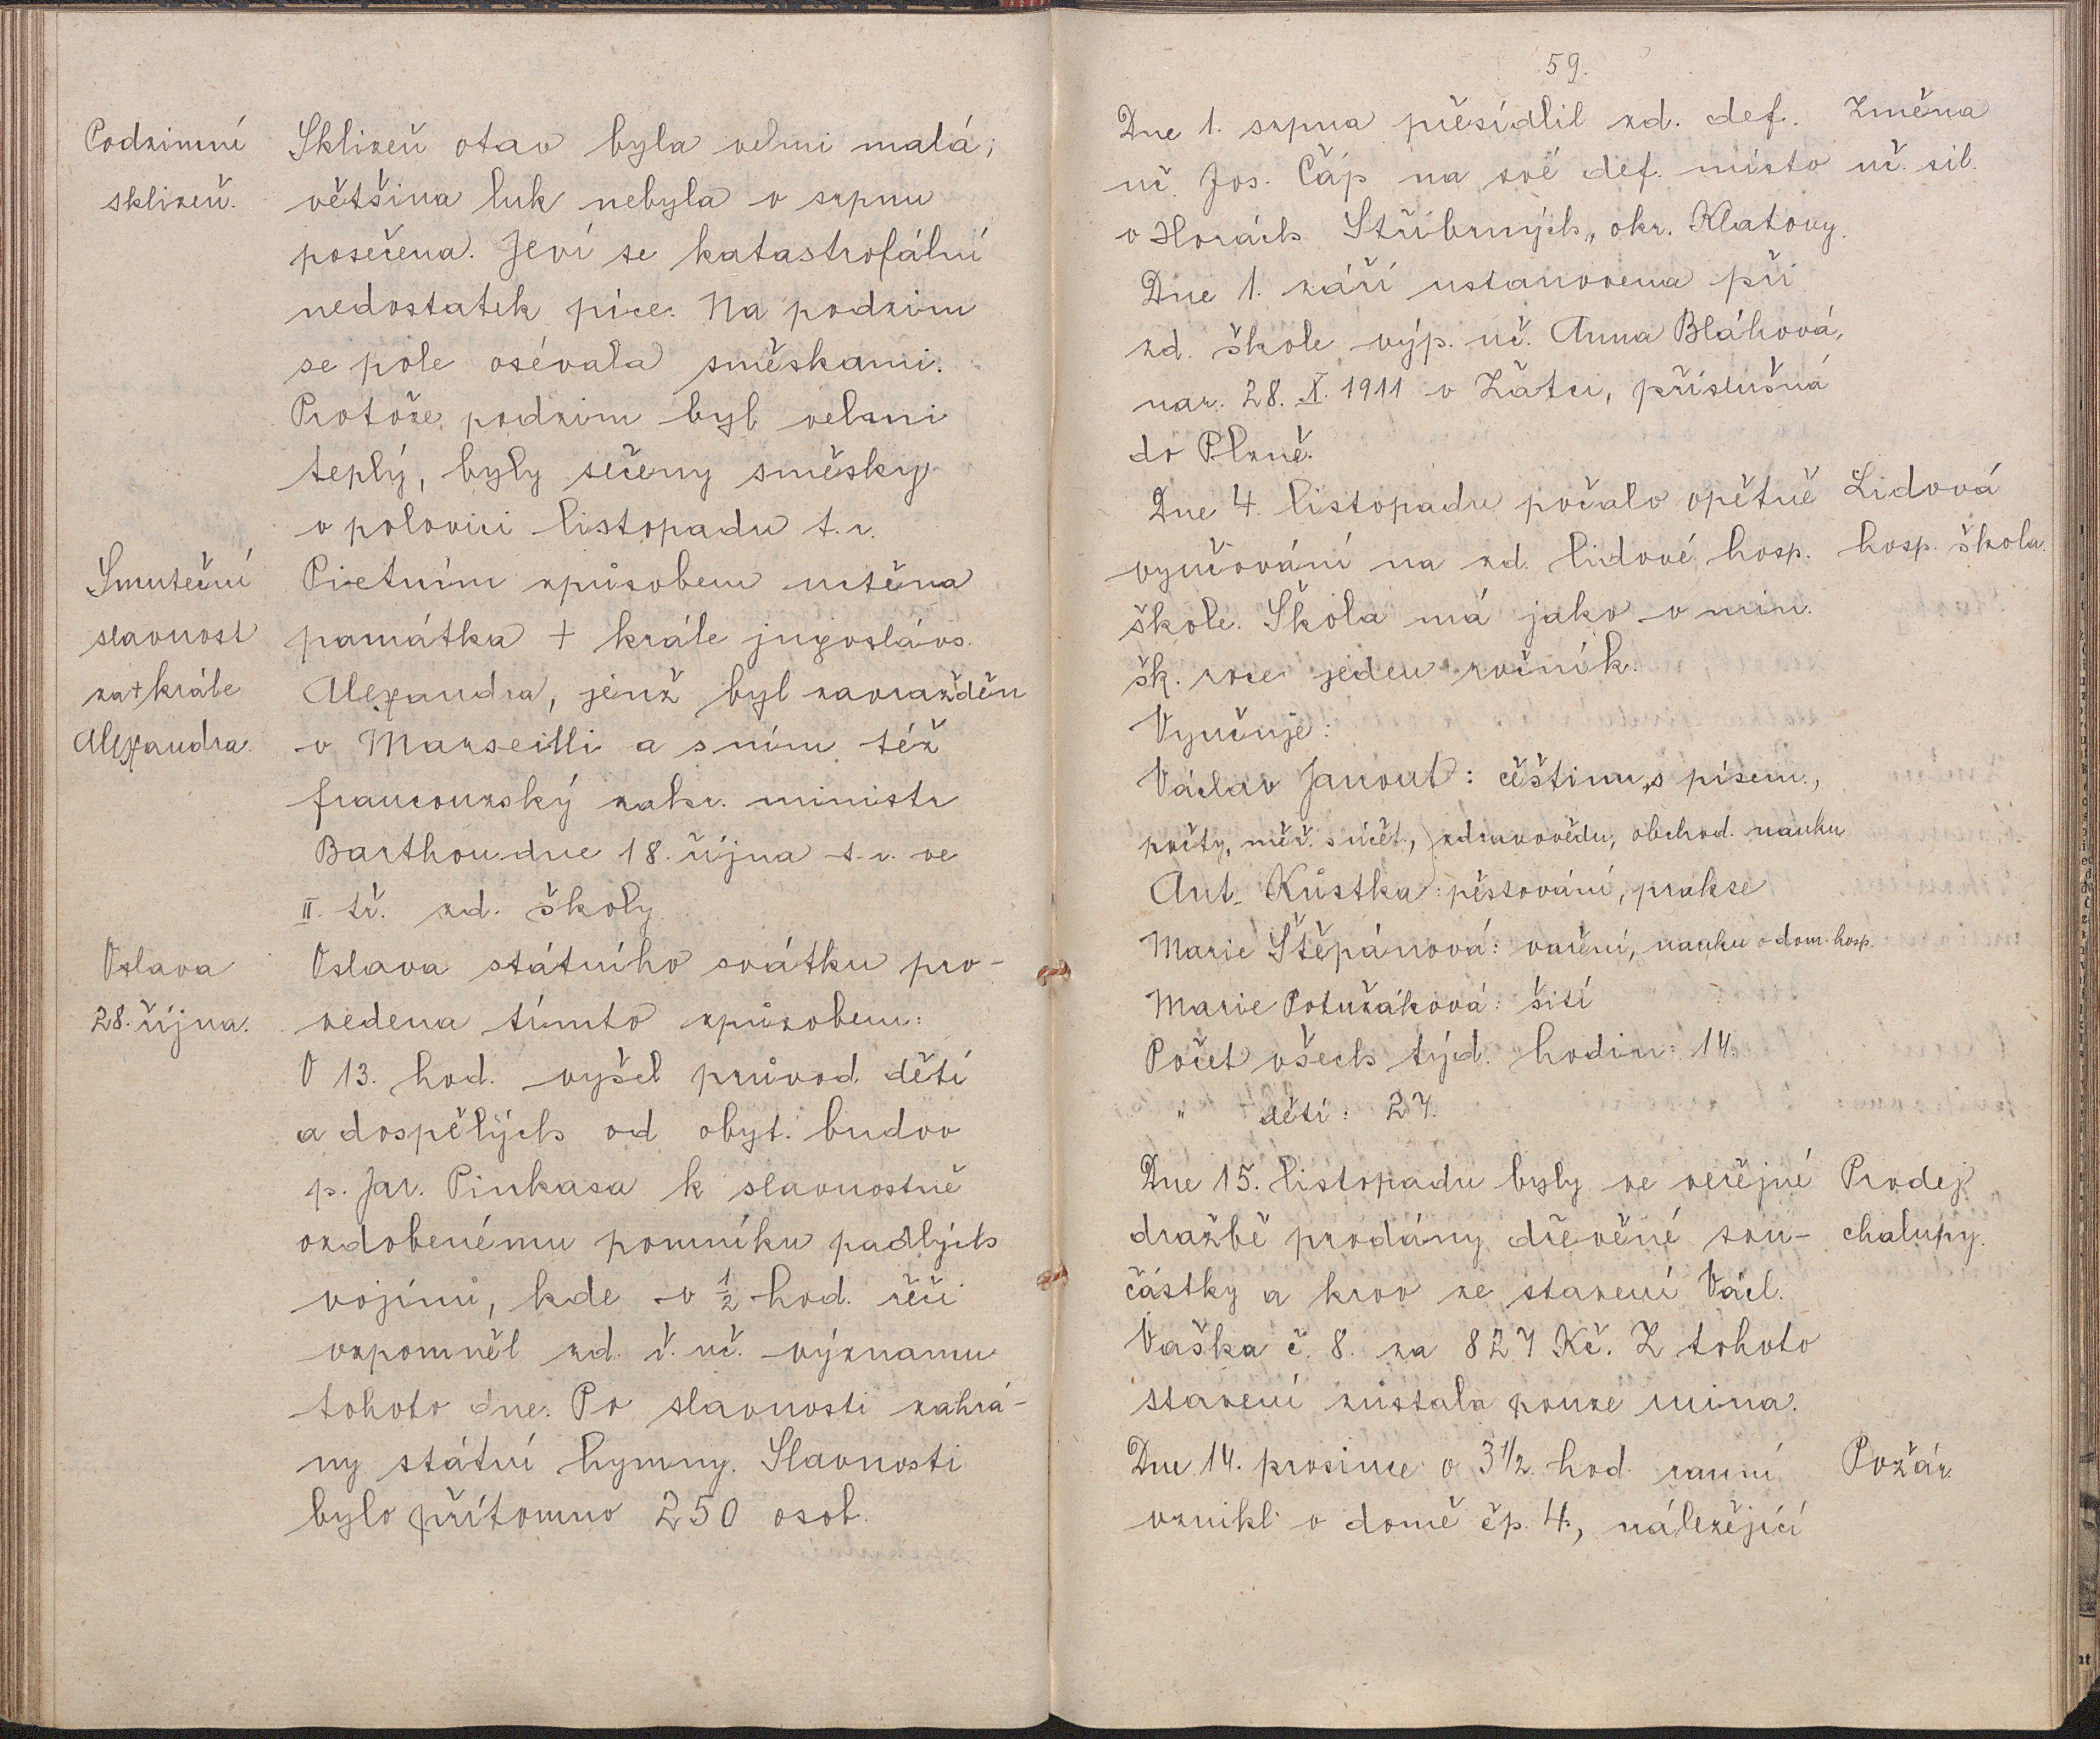 Podzimní
sklizeň.
Sklizeň otav byla velmi malá;
většina luk nebyla v srpnu
posečena. Jeví se katastrofální
nedostatek píce. Na podzim
se pole osévala směskami.
Protože podzim byl velmi
teplý, byly sečeny směsky
v polovici listopadu t. r.
Smuteční
slavnost
za + krále
Alexandra.
Pietním způsobem uctěna
památka + krále jugosláv.
Alexandra, jenž byl zavražděn
v Marseilli a s ním též
francouzský zahr. ministr
Barthou dne 18. října t. r. ve
II. tř. zd. školy.
Oslava
28. října.
Oslava státního svátku pro-
vedena tímto způsobem:
V 13. hod. vyšel průvod dětí
a dospělých od obyt. budov
p. Jar. Pinkasa k slavnostně
ozdobenému pomníku padlých
vojínů, kde v ½ hod. řeči
vzpomněl zd. ř. uč. významu
tohoto dne. Po slavnosti zahrá-
ny státní hymny. Slavnosti
bylo přítomno 250 osob.
59.
Dne 1. srpna přesídlil zd. def.
uč. Jos. Čáp na své def. místo
v Horách Stříbrných, okr. Klatovy.
Dne 1. září ustanovena při
zd. škole výp. uč. Anna Bláhová,
nar. 28. X. 1911 v Žatci, příslušná
do Plzně.
Změna
uč. sil.
Dne 4. listopadu počalo opětně
vyučování na zd. lidové hosp.
škole. Škola má jako v min.
šk. roce jeden ročník.
Lidová
hosp. škola.
Vyučuje:
Václav Janout: češtinu s písem.,
počty, měř. s účet., zdravovědu, obchod. nauku
Ant. Kůstka: pěstování, prakse
Marie Štěpánová: vaření, nauku o dom. hosp.
Marie Potužáková: šití
Počet všech týd. hodin: 14.
" dětí: 27.
Dne 15. listopadu byly ve veřejné
dražbě prodány dřevěné sou-
částky a krov ze stavení Václ.
Vaška č. 8. za 827 Kč. Z tohoto
stavení zůstala pouze ruina.
Prodej
chalupy.
Dne 14. prosince o 3 1/2 hod. ranní
vznikl v domě čp. 4., náležející
Požár.